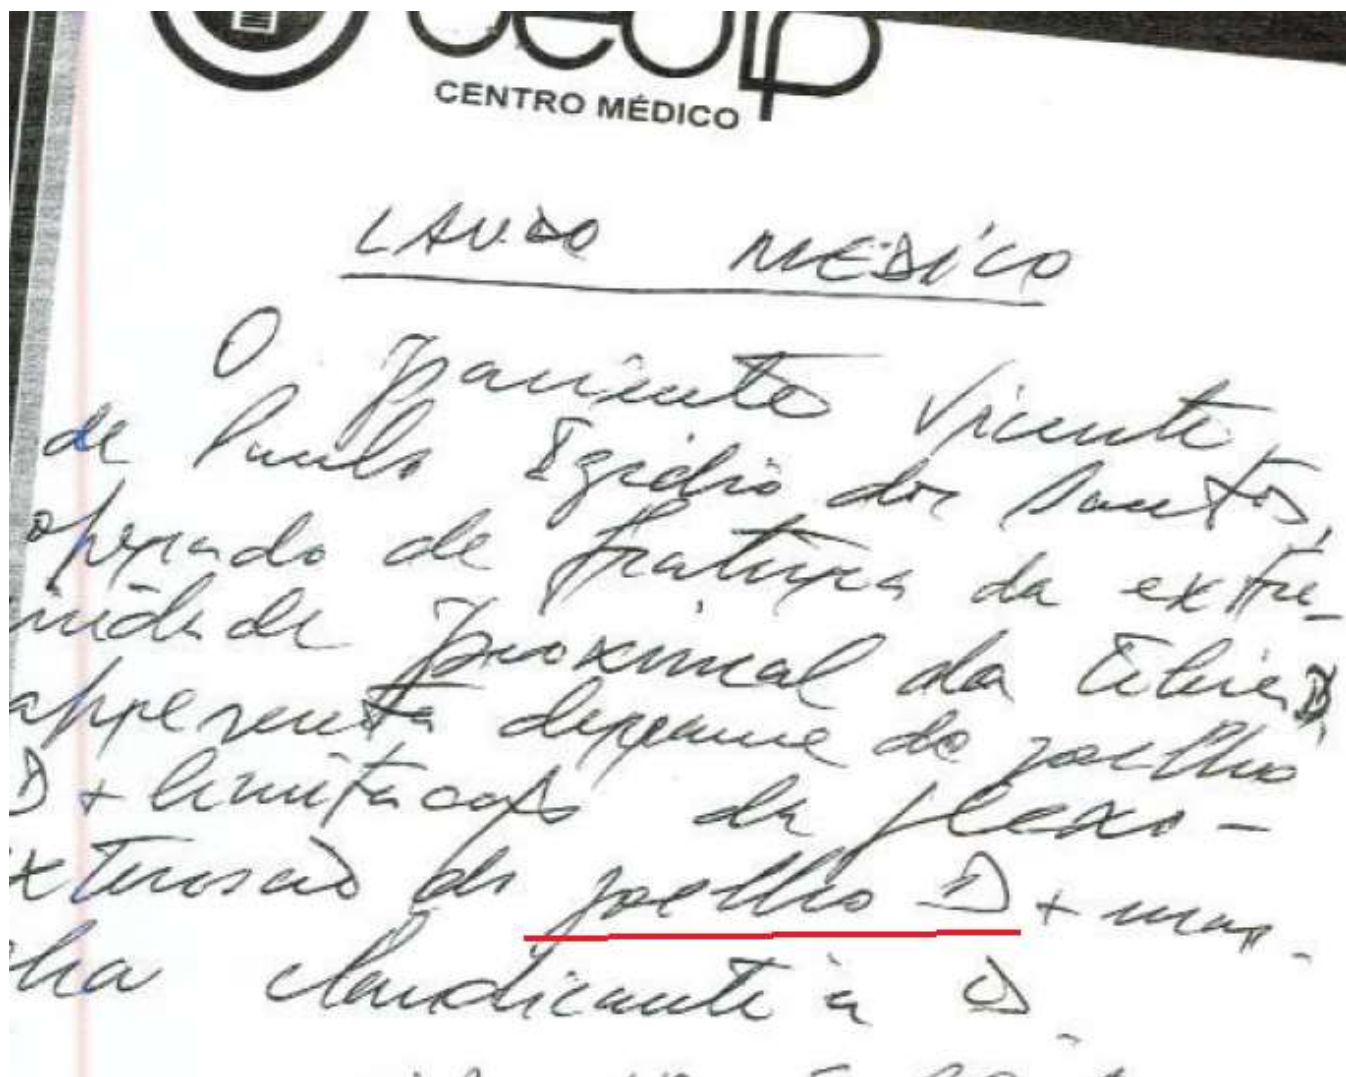 CENTRO MÉDICO
LAUDO MEDICO
O paciente Vicente
de Paulo Egidio dos Santos,
operado de fratura da extre-
midade proximal da tibia D,
apresenta derrame do joelho
D + limitação da flexo-
extensão do joelho D + mar-
cha claudicante à D.